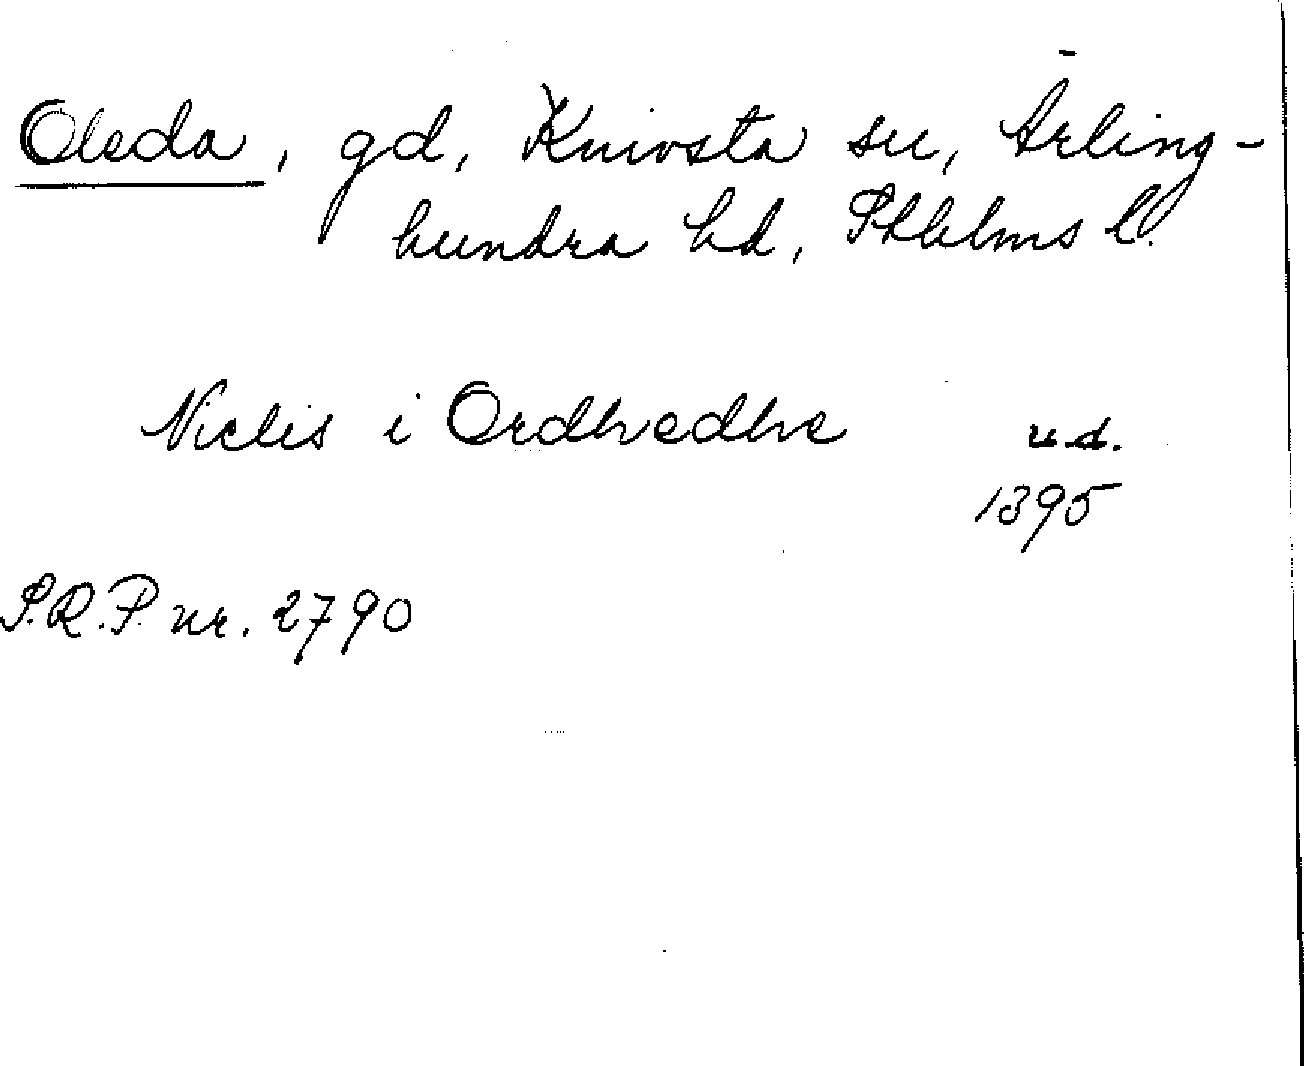 Oleda, gd, Knivsta sn, Ärling-
hundra hd, Sthlms l.
Niclis i Ordhvedhe u.d.
1395
S.R.P. nr. 2790